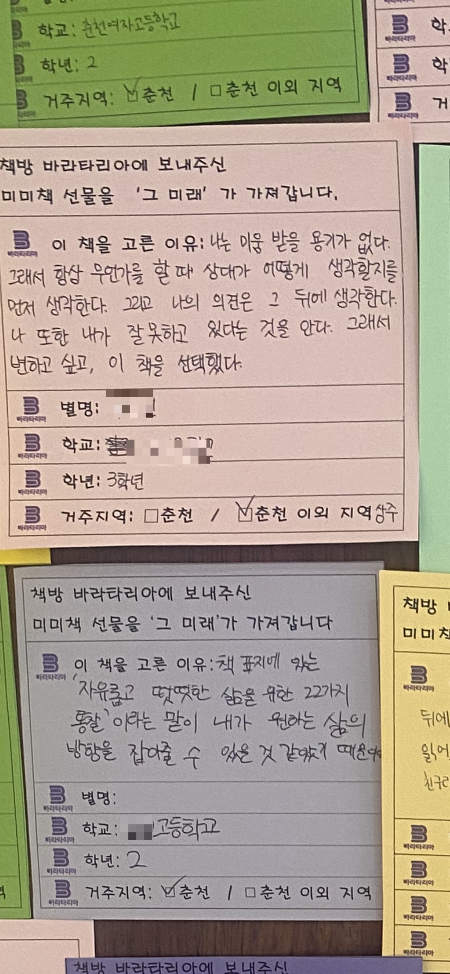 학교: 춘천여자고등학교
바라타리아
학년: 2
바라타리아
거주지역: ☑춘천 / □춘천 이외 지역
바라타리아
학
바라타리아
학
바라타리아
거
바라타리아
책방 바라타리아에 보내주신
미미책 선물을 '그 미래' 가 가져갑니다.
이 책을 고른 이유: 나는 미움 받을 용기가 없다.
바라타리아
그래서 항상 무언가를 할 때 상대가 어떻게 생각할지를
먼저 생각한다. 그리고 나의 의견은 그 뒤에 생각한다.
나 또한 내가 잘못하고 있다는 것을 안다. 그래서
변하고 싶고, 이 책을 선택했다.
별명:
바라타리아
학교:
바라타리아
학년: 3학년
바라타리아
거주지역: □춘천 / ☑춘천 이외 지역 상주
바라타리아
책방 바라타리아에 보내주신
미미책 선물을 '그 미래'가 가져갑니다
이 책을 고른 이유: 책 표지에 있는
바라타리아
'자유롭고 떳떳한 삶을 위한 22가지
통찰' 이라는 말이 내가 원하는 삶의
방향을 잡아줄 수 있을 것 같았기 때문이
별명:
바라타리아
학교: 고등학교
바라타리아
학년: 2
바라타리아
거주지역: ☑춘천 / □춘천 이외 지역
바라타리아
책방
미미책
바라타리아
뒤에
읽어
친구
바라타리아
바라타리아
바라타리아
바라타리아
책방 바라타리아에 보내주신